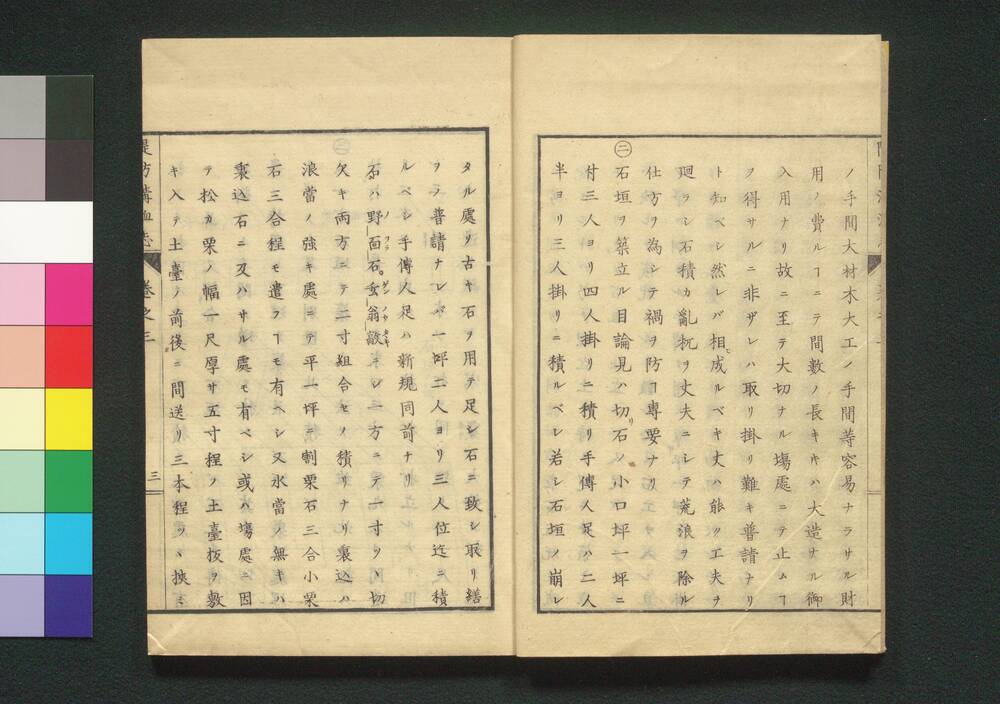 ノ手間大材木大工ノ手間等容易ナラサル財
用ノ費ルヿニテ間數ノ長キキハ大造ナル御
入用ナリ故ニ至テ大切ナル塲處ニテ止ムヿ
ヲ得サルニ非ザレハ取リ掛リ難キ普請ナリ
ト知ベシ然レバ相成ルベキ丈ハ能ク工夫ヲ
廻ラシ石積カ亂杭ヲ丈夫ニシテ荒浪ヲ除ル
仕方ヲ為シテ禍ヲ防ヿ專要ナリ
㊁石垣ヲ築立ル目論見ハ切石ノ小口坪一坪ニ
付三人ヨリ四人掛リニ積リ手傳人足ハ二人
半ヨリ三人掛リニ積ルベシ若シ石垣ノ崩レ
タル處リ古キ石ヲ用テ足シ石ニ致シ取リ繕
ヲラ普請ナレバ一坪二人ヨリ三人位迄ニ積
ルベシ手傳人足ハ新規同前ナリ
石ハ野面石玄翁敲ニシ二方ニテ一寸ツヽ切
欠キ両方ニテ二寸組合セノ積リナリ裏込ハ
浪當ノ強キ處ニテ平一坪ニ割栗石三合小栗
石三合程モ遣フヿモ有ヘシ又水當ノ無キハ
裏込石ニ及ハサル處モ有ベシ或ハ塲處ニ因
テ松カ栗ノ幅一尺厚サ五寸程ノ土臺板ヲ敷
キ入テ土臺ノ前後ニ間送リ三本程ツヽ挾ミ
卷之三
三